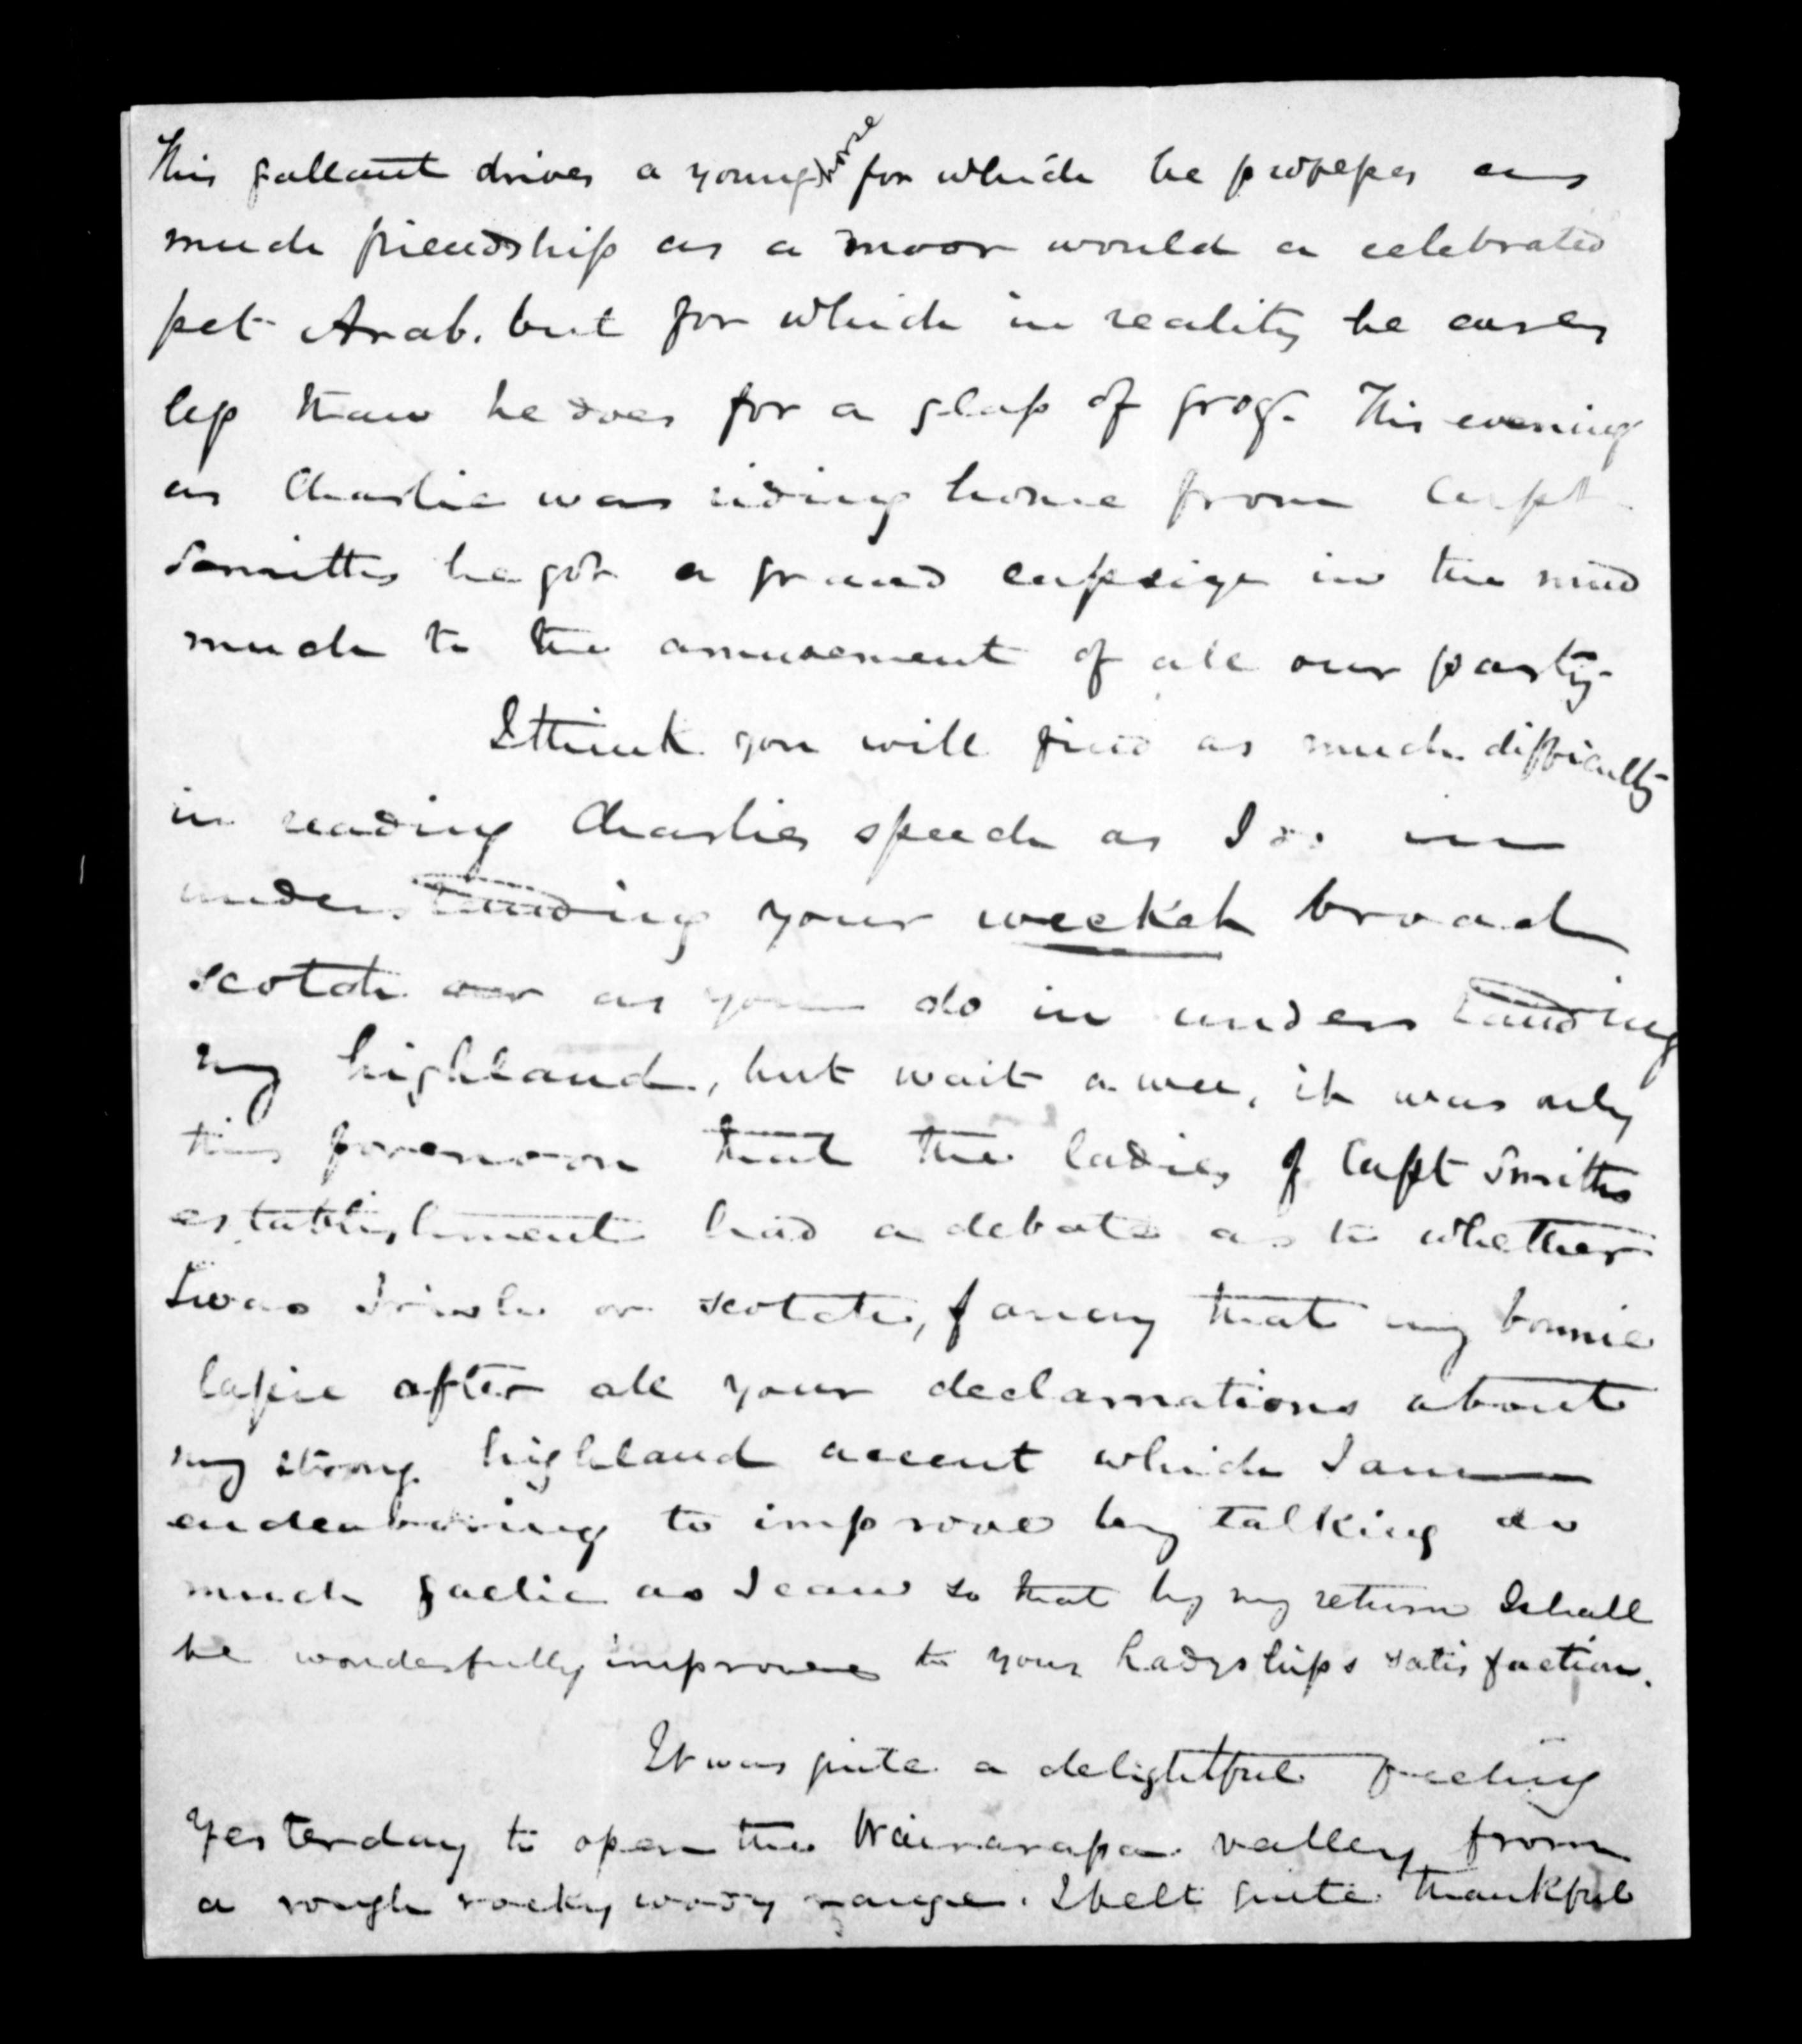 This gallant drives a young horse for which he professes as
much friendship as a moor would a celebrated
pet Arab. but for which in reality he cares
less than he does for a glass of grog. This evening
as Charlie was riding home from Capt
Smiths he got a grand capsize in the mud
much to the amusement of all our party.
I think you will find as much difficulty
in reading Charlies speech as I do in
understanding your weekek broad
scotch as you do in understanding
my highland, but wait a wee, it was only
this forenoon that the ladies of Capt Smiths
establishment had a debate as to whether
I was Irish or scotch, fancy that my bonnie
lassie after all your declamations about
my strong highland accent which I am
endeavoring to improve by talking as
much gaelic as I can so that by my return I shall
be wonderfully improved to your Ladyships satisfaction.
It was quite a delightful feeling
Yesterday to open the Wairarapa valley from
a rough rocky woody range. I felt quite thankful